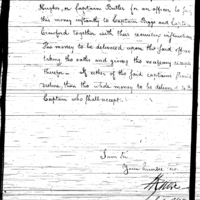 Hughes, or Captain Butler for an officer to
this money instantly to Captain Biggs and Captain
Crawford together with their recruiting instructions
The money to be delivered upon the said officer
taking the oaths and giving the necessary receipts
therefor. If either of the said captains
refuse, then the whole money to be delivered to the
Captain who shall accept.
I am Sir
Your humble